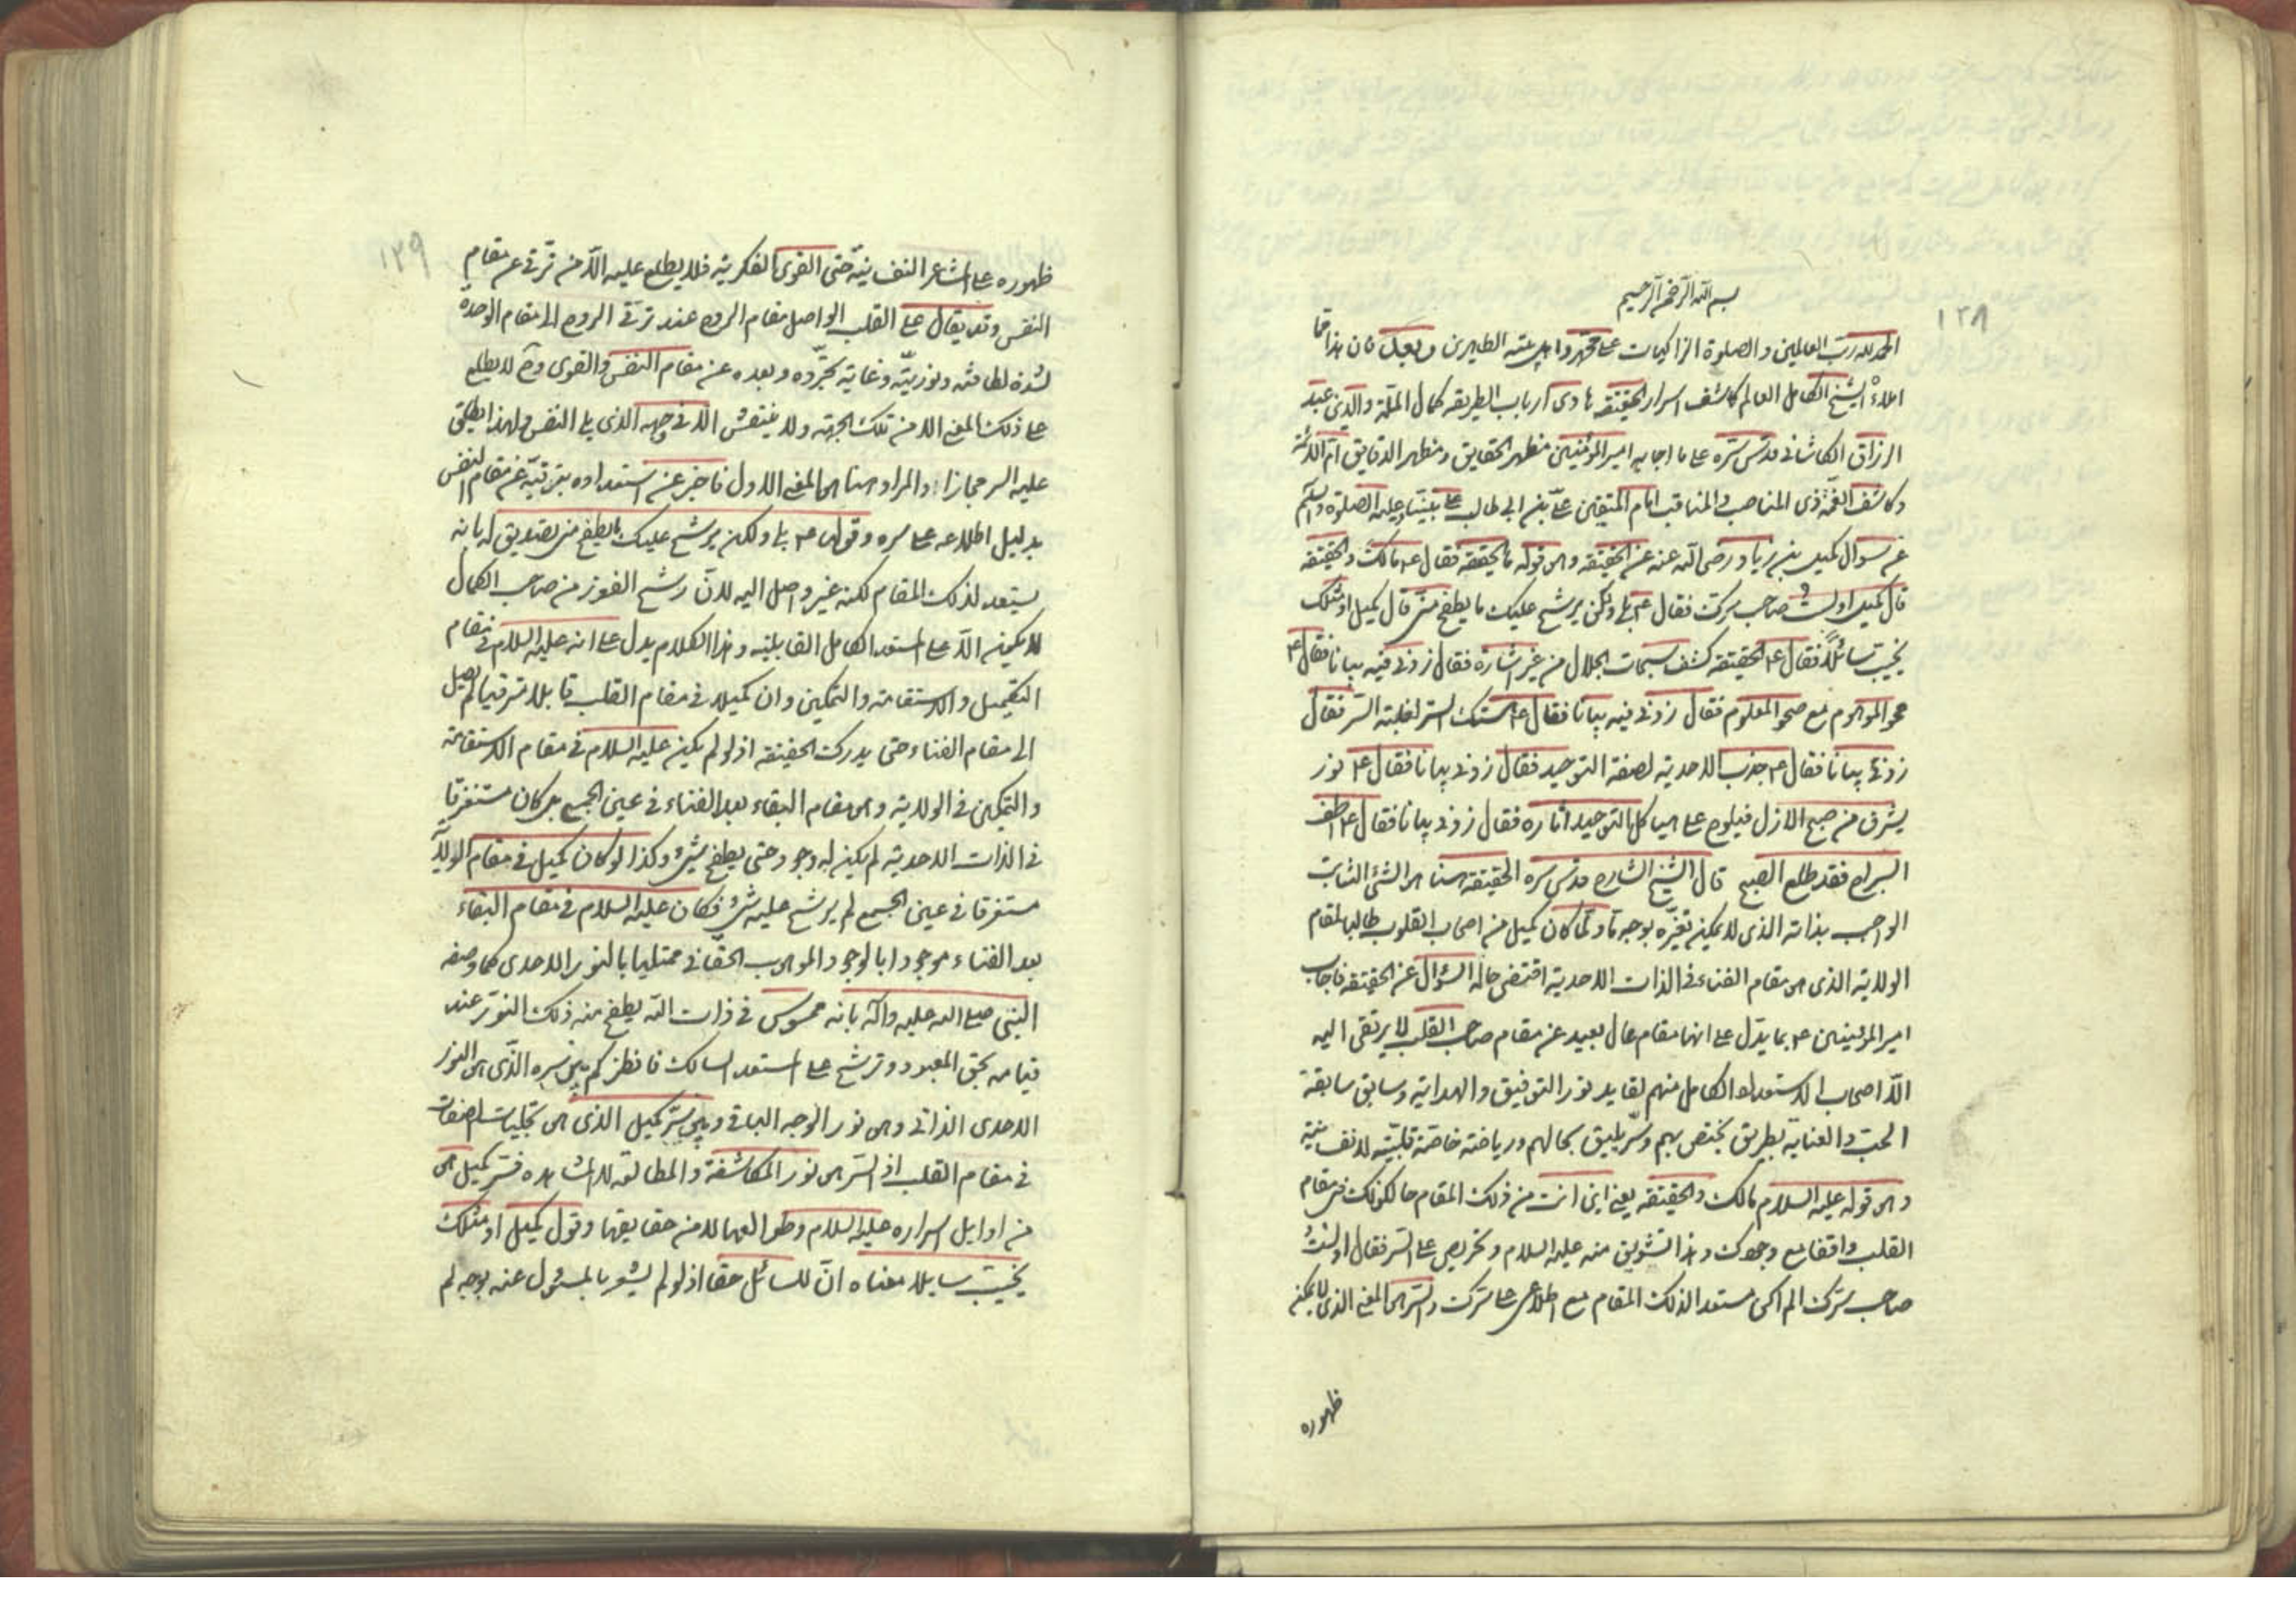 ١٢٨
بسم الله الرحمن الرحيم
الحمد لله رب العالمين والصلوة الزاكيات على محمد واهل بيته الطاهرين وبعد فان هذا مما
املاه الشيخ الكامل العالم كاشف اسرار الحقيقة هادى ارباب الطريقه كمال الملة والدين عبد
الرزاق الكاشانى قدس سره على ما اجاب به امير المؤمنين مظهر الحقايق ومظهر الدقايق ام الائمة
وكاشف الغمة ذى المناصب والمناقب امام المتقين على بن ابى طالب على نبينا وعليه الصلوة والسلم
عن سوال كميل بن زياد رضى الله عنه عن الحقيقة وهو قوله ما الحقيقة فقال ع مالك والحقيقة
قال كميل اولست صاحب سرك فقال ع بلى ولكن يرشح عليك ما يطفح منى قال كميل اومثلك
يخيب سائلاً فقال ع الحقيقة كشف سبحات الجلال من غير اشارة فقال زدنى فيه بيانا فقال ع
محو الموهوم مع صحو المعلوم فقال زدنى فيه بيانا فقال ع هتك الستر لغلبة السر فقال
زدنى بيانا فقال ع جذب الاحدية لصفة التوحيد فقال زدنى بيانا فقال ع نور
يشرق من صبح الازل فيلوح على هياكل التوحيد آثاره فقال زدنى بيانا فقال ع اطف
السراج فقد طلع الصبح قال الشيخ الشارح قدس سره الحقيقة هنا هو الشئ الثابت
الواجب بذاته الذى لا يمكن تغيّره بوجه ما ولما كان كميل من اصحاب القلوب طالبا لمقام
الولاية الذى هو مقام الفناء فى الذات الاحدية اقتضى حاله السؤال عن الحقيقة فاجاب
امير المؤمنين ع بما يدل على انها مقام عال بعيد عن مقام صاحب القلب لا يرتقى اليه
الا اصحاب الاستعداد الكامل منهم لقايد نور التوفيق والهداية وسابق سابقة
الحب والعناية بطريق يختص بهم وسر يليق بحالهم ورياضة خاصة قلبيّة لا نفسانية
وهو قوله عليه السلام مالك والحقيقة يعنى اين انت من ذلك المقام حالكونك فى مقام
القلب واقفا مع وجودك وهذا تشويق منه عليه السلام وتحريص على السر فقال اولستُ
صاحب سرّك الم اكن مستعدا لذلك المقام مع اطلاعى على سرك والسر هو المعنى الذى لا يمكن
ظهوره
١٢٩
ظهوره على المشاعر النفسانيّة حتى القوى الفكرية فلا يطلع عليه الا من ترقى عن مقام
النفس وقد يقال على القلب الواصل مقام الروح عند ترقى الروح الى مقام الوحدة
لشدة لطافته ونوريّته وغاية تجرّده وبعده عن مقام النفس والقوى وح لا يطلع
على ذلك المعنى الا من تلك الجهة ولا ينتقش الا فى وجهه الذى يلى النفس ولهذا يطلق
عليه السر مجازا والمراد هنا هو المعنى الاول فاخبر عن استعداده بترقيه عن مقام النفس
بدليل اطلاعه على سره وقوله ع بلى ولكن يرشح عليك ما يطفح منى تصديق له بانه
يستعد لذلك المقام لكنه غير واصل اليه لان رشح الفوز من صاحب الكمال
لا يكون الا على المستعد الكامل القابلية وهذا الكلام يدل على انه عليه السلام فى مقام
التكميل والاستقامة والتمكين وان كميلا فى مقام القلب قابلا مترقيا لم يصل
الى مقام الفناء حتى يدرك الحقيقة اذ لو لم يكن عليه السلام فى مقام الاستقامة
والتمكين فى الولاية وهو مقام البقاء بعد الفناء فى عين الجمع بل كان مستغرقا
فى الذات الاحدية لم يكن له وجود حتى يطفح بشئ وكذا لو كان كميل فى مقام الولاية
مستغرقا فى عين الجمع لم يرشح عليه شئ فكان عليه السلام فى مقام البقاء
بعد الفناء موجودا بالوجود الموهوب الحقانى ممتليا بالنور الاحدى كما وصفه
النبى صلى الله عليه وآله بانه ممسوس فى ذات الله يطفح منه ذلك النور عند
قيامه بحق المعبود وترشح على المستعد السالك فانظر كم بين سره الذى هو النور
الاحدى الذاتى وهو نور الوجه الباقى وبين سر كميل الذى هو تجليات الصفات
فى مقام القلب اذ السر هو نور المكاشفة والمطالعة لا المشاهدة فسر كميل هو
من اوايل اسراره عليه السلام وطوالعها لا من حقايقها وقول كميل اومثلك
يخيب سايلا معناه انّ للسائل حقا اذ لو لم يشعر بالمسئول عنه بوجه لم